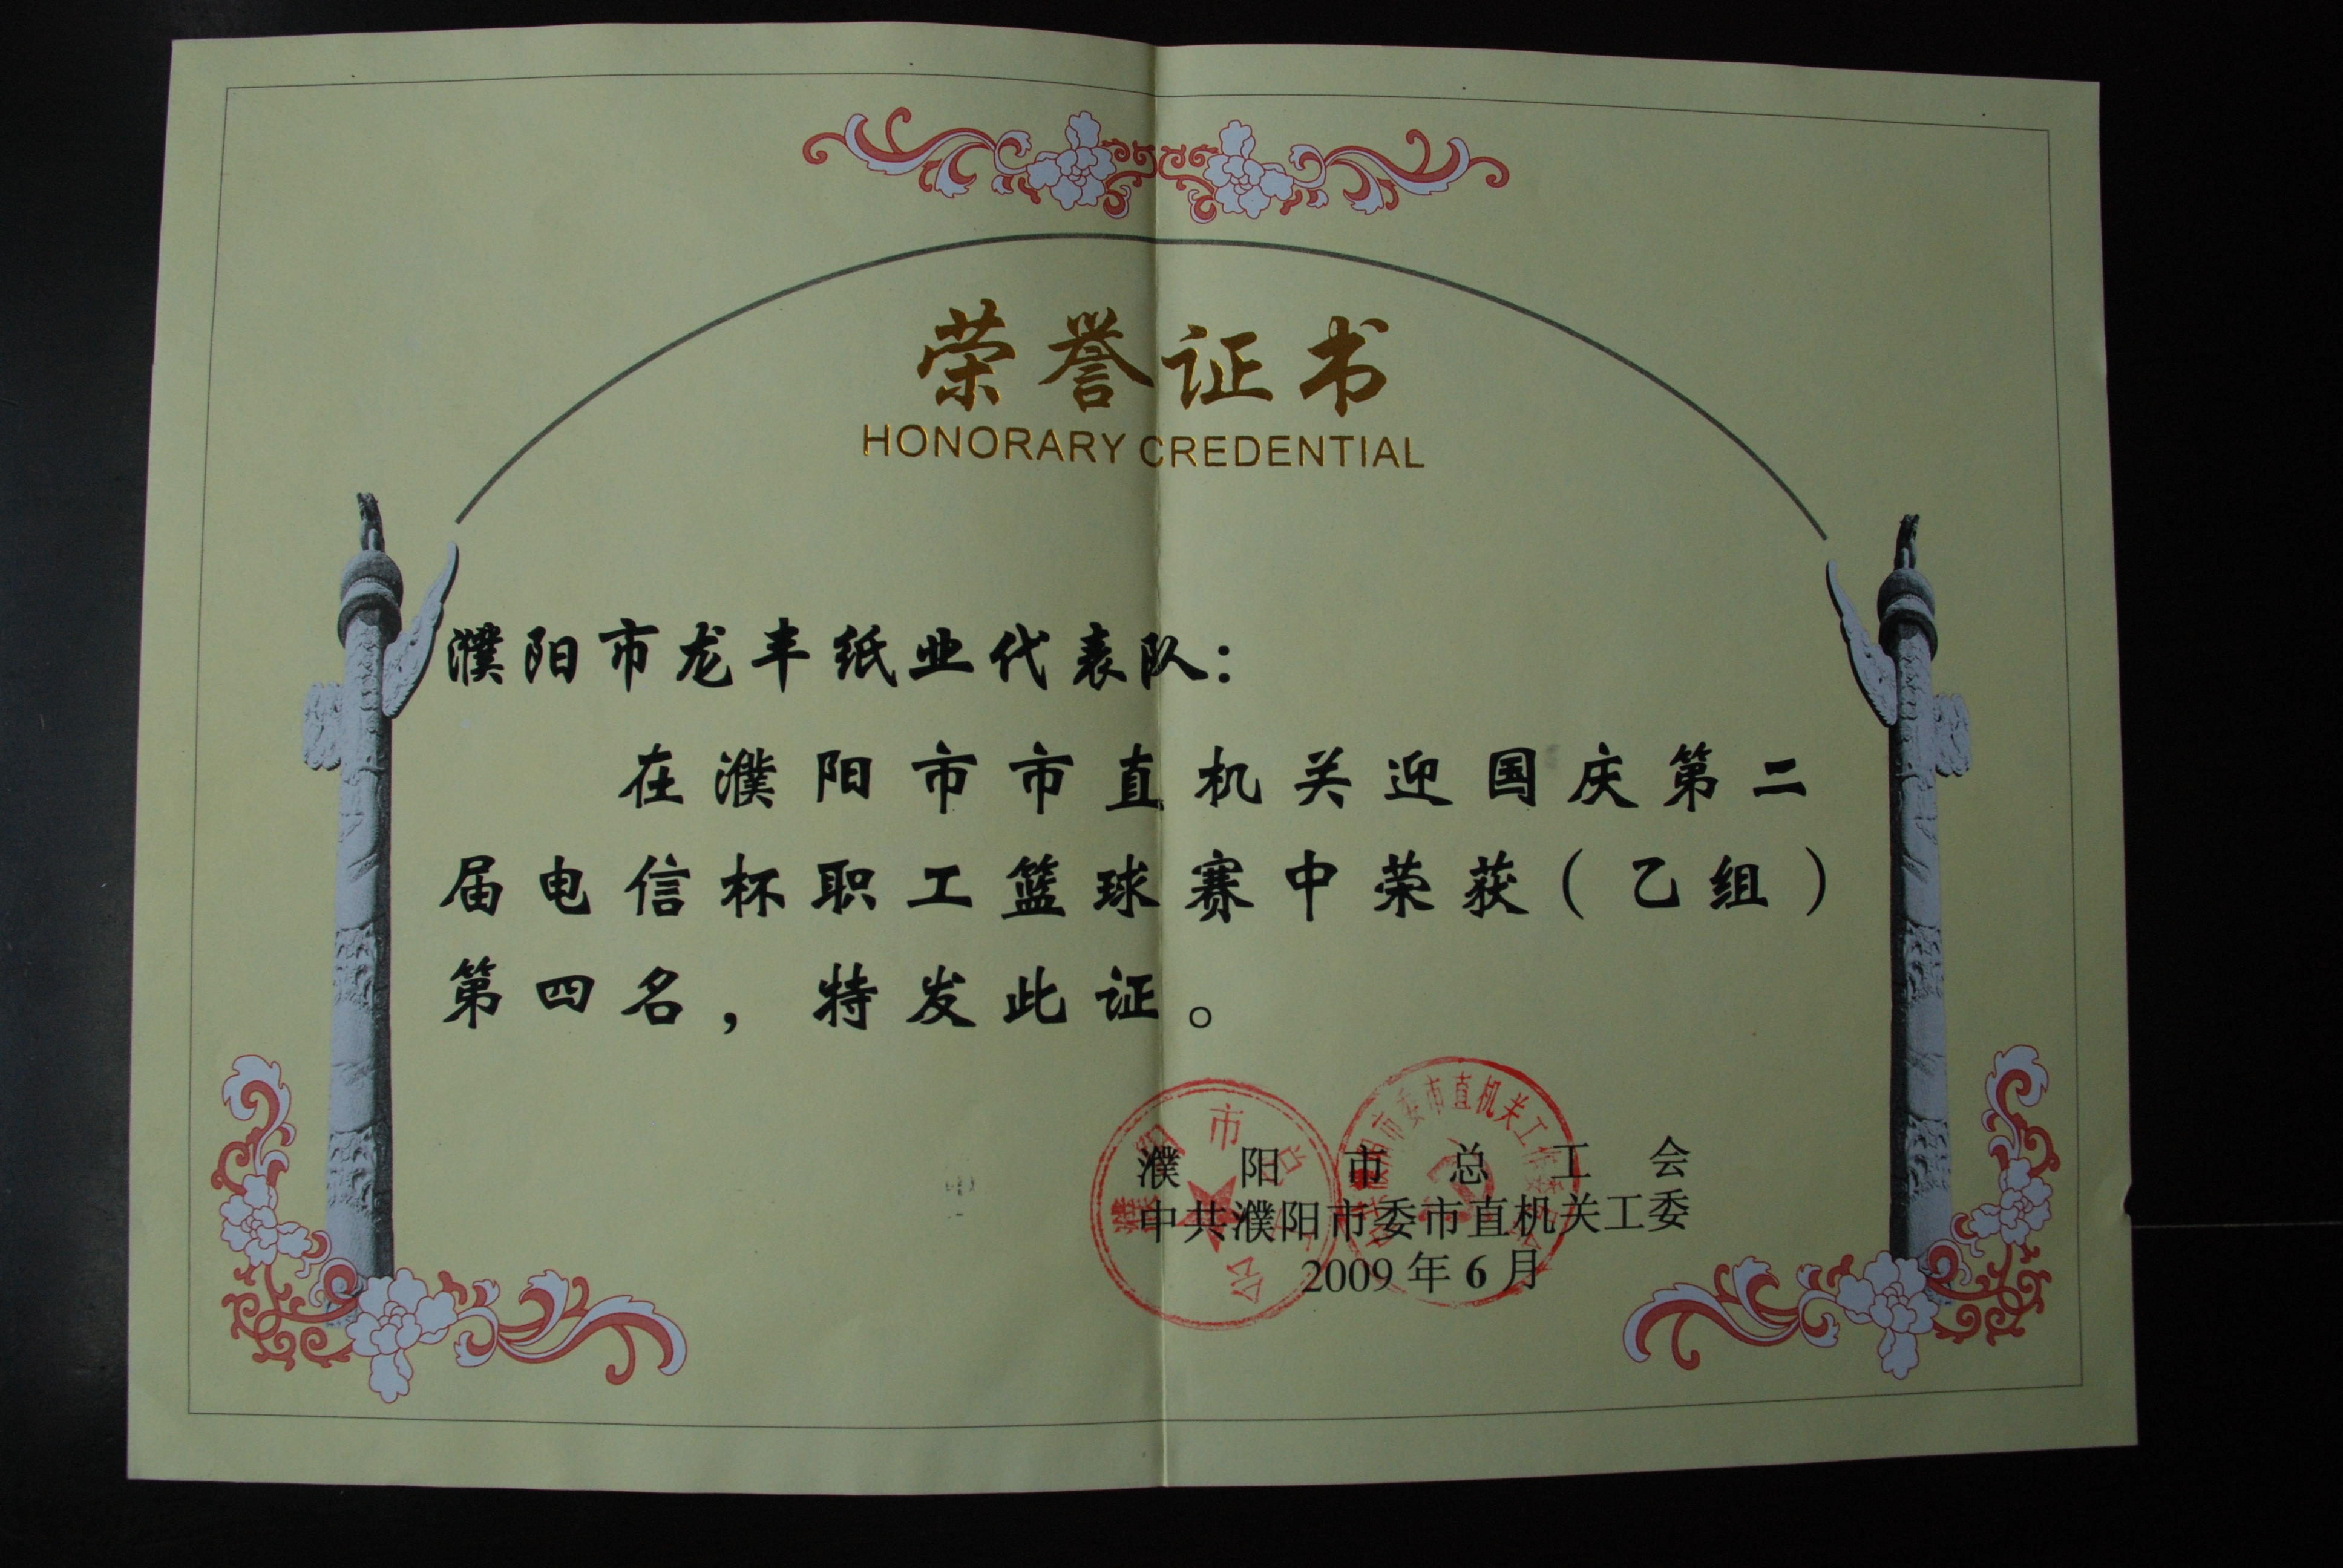 荣誉证书
HONORARY CREDENTIAL
濮阳市龙丰纸业代表队：
在濮阳市市直机关迎国庆第二
届电信杯职工篮球赛中荣获（乙组）
第四名，特发此证。
濮阳市总工会
中共濮阳市委市直机关工委
2009年6月
濮阳市总工会
市委市直机关工